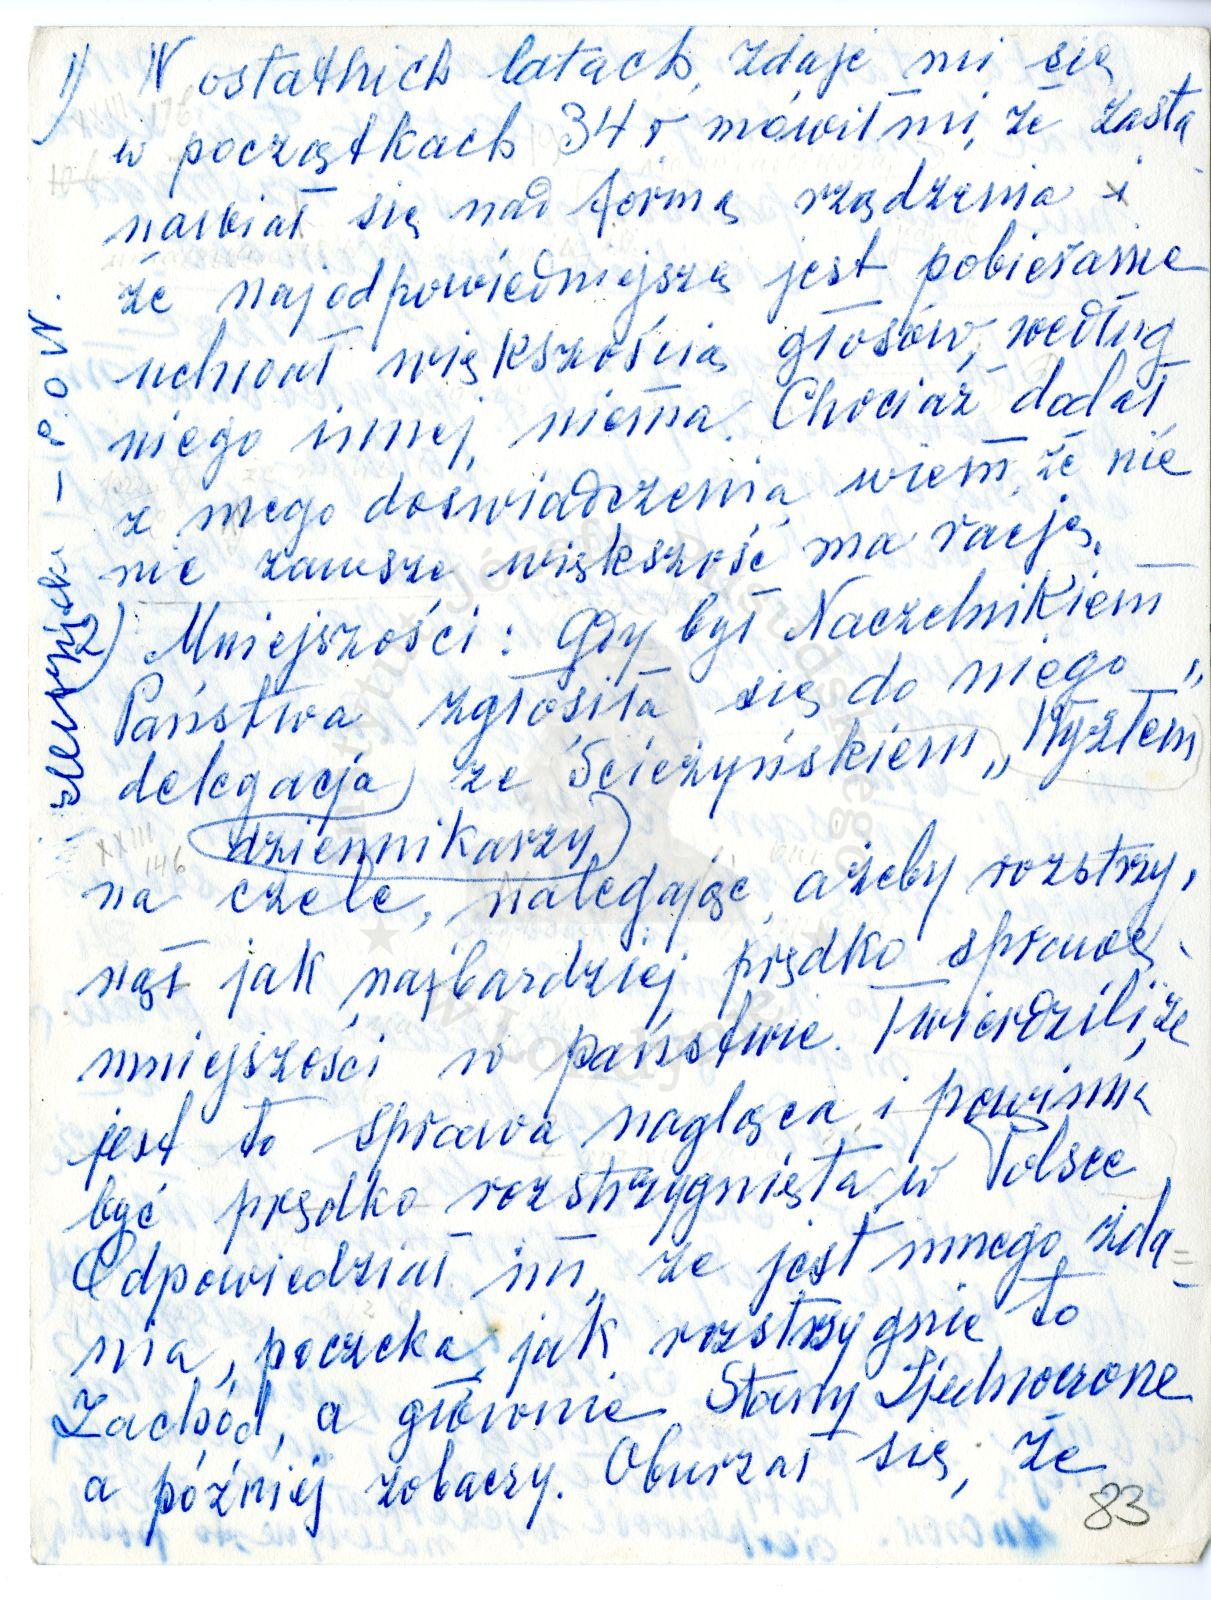 1) W ostatnich latach, zdaje mi się
w początkach 34 r mówił mi, że zasta
nawiał się nad formą rządzenia i
że najodpowiedniejszą jest pobieranie
uchwał większością głosów, według
niego innej, niema. Chociaż dodał
z mego doświadczenia wiem, że nie
nie zawsze większość ma rację.
2) Mniejszości: Gdy był Naczelnikiem
Państwa zgłosiła się do niego
delegacja ze Ścieżyńskiem, „Wyżłem"
dziennikarzy
na czele, nalegając, ażeby rozstrzy,
nął jak najbardziej prędko sprawę
mniejszości w państwie. Twierdzili, że
jest to sprawa nagląca i powinna
być prędko rozstrzygnięta w Polsce
Odpowiedział im, że jest innego zda=
nia, poczeka, jak rozstrzygnie to
Zachód, a głównie Stany Zjednoczone
a później zobaczy. Oburzał się, że
83
P.O.W.
XXIII
146
Instytut Józefa Piłsudskiego
w Londynie